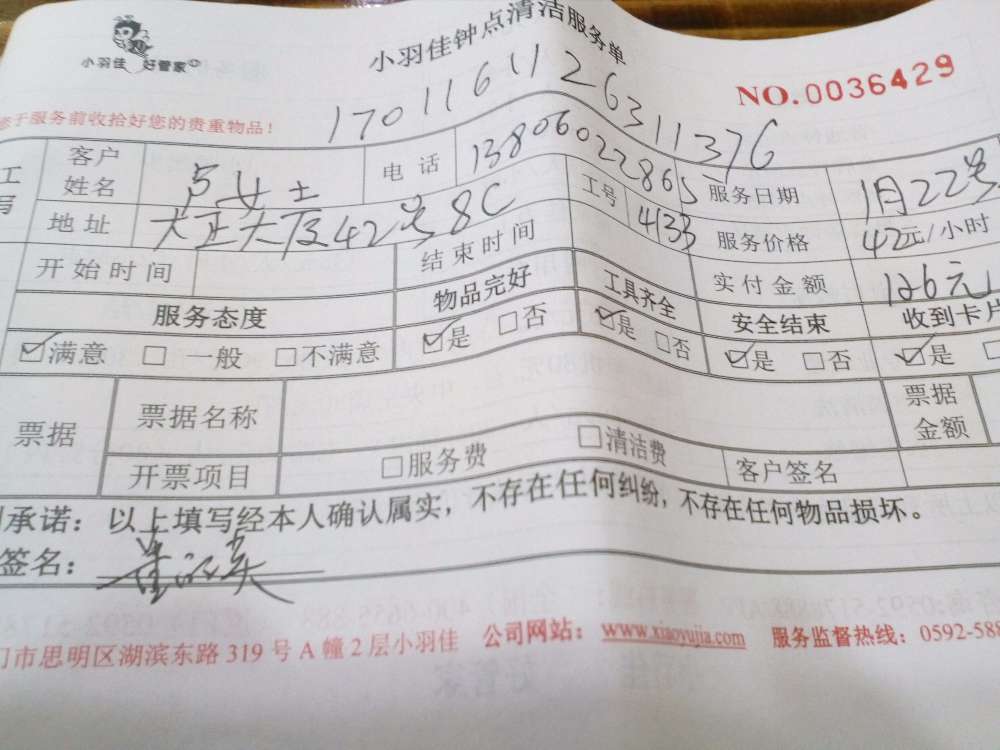 小羽佳 好管家
小羽佳钟点清洁服务单
NO.0036429
于服务前收拾好您的贵重物品！
1701161126311376
客户姓名 女士 电话 13806022865 服务日期 1月22号
地址 大正大厦42号8C 工号 4133 服务价格 42元/小时
开始时间 结束时间 实付金额 126元
服务态度 物品完好 工具齐全 安全结束 收到卡片
☑满意 □一般 □不满意 ☑是 □否 ☑是 □否 ☑是 □否 ☑是 □
票据 票据名称 票据金额
开票项目 □服务费 □清洁费 客户签名
承诺：以上填写经本人确认属实，不存在任何纠纷，不存在任何物品损坏。
签名：
门市思明区湖滨东路319号A幢2层小羽佳 公司网站：www.xiaoyujia.com 服务监督热线：0592-588